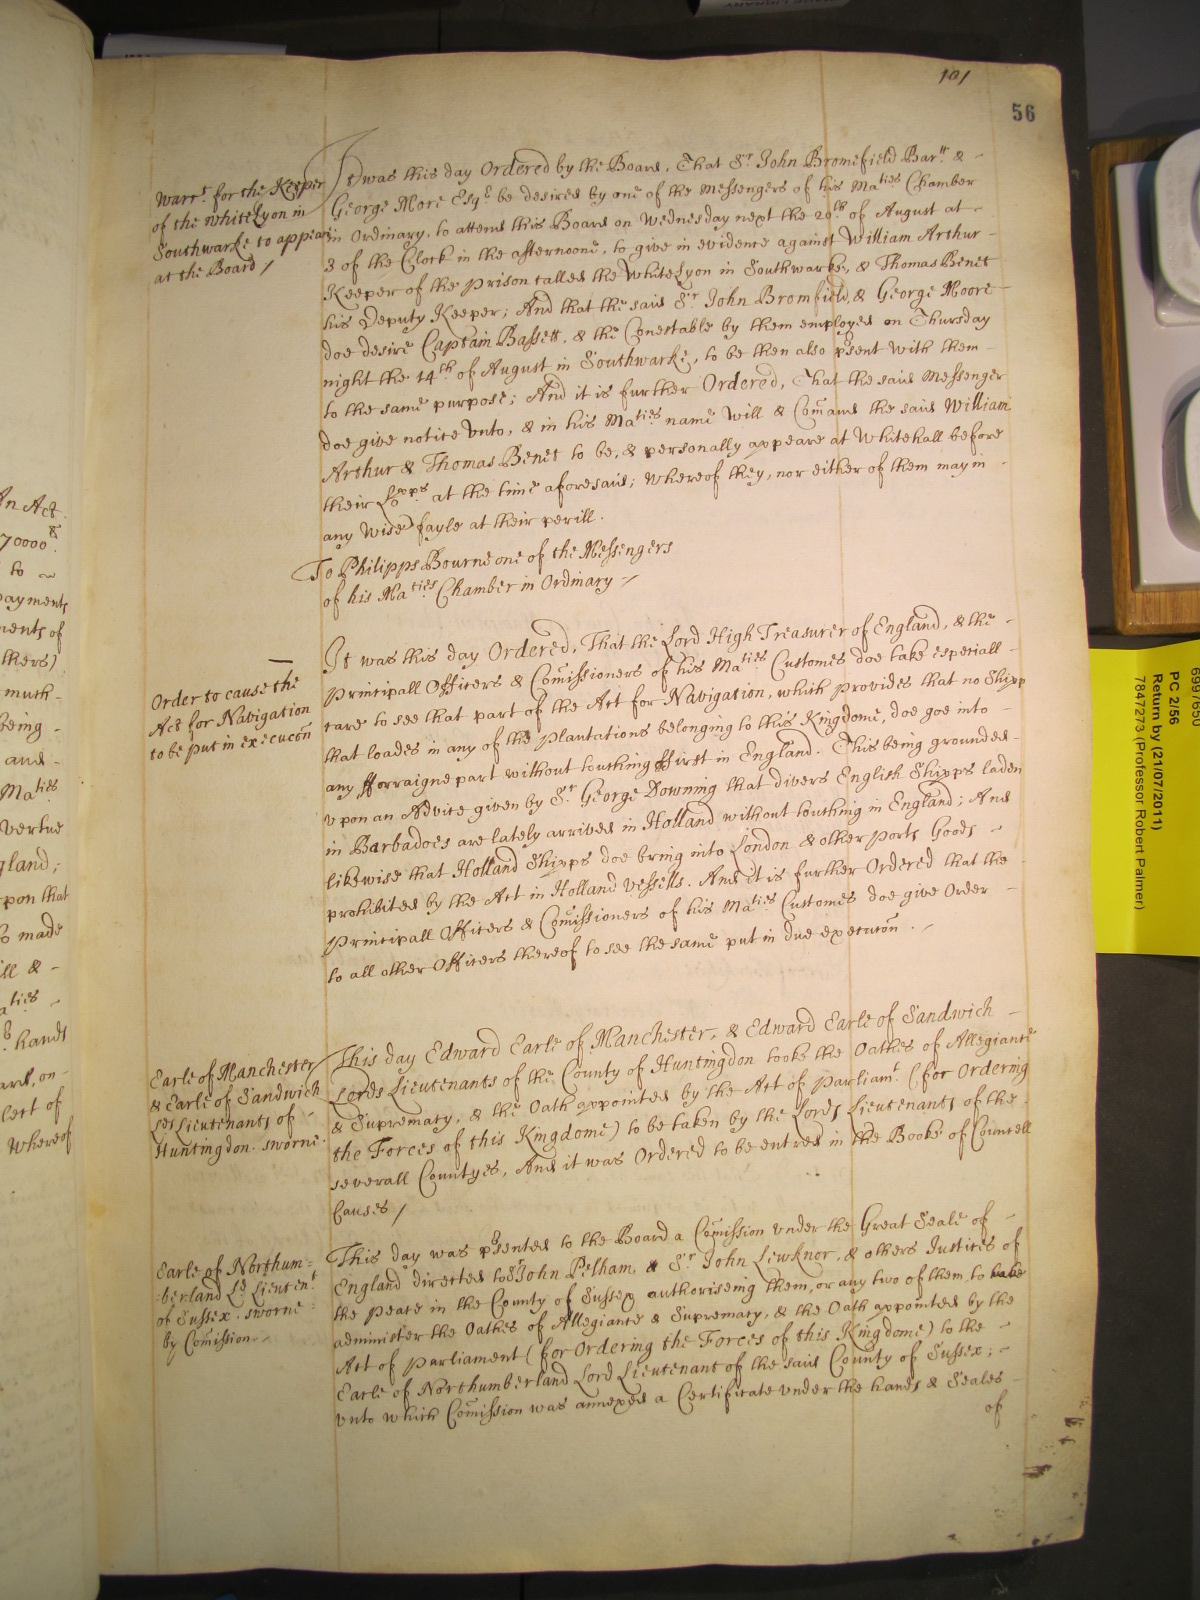 101
56
Warrt. for the Keeper
of the White Lyon in
Southwarke to appear
at the Board /
It was this day Ordered by the Board, That Sr. John Bromefield Bartt. & -
George More Esqr. be desired by one of the Messengers of his Maties Chamber
in Ordinary, to attend this Board on Wednesday next the 20th of August at -
3 of the Clock in the afternoone, to give in evidence against William Arthur -
Keeper of the Prison called the White Lyon in Southwarke, & Thomas Benet
his Deputy Keeper; And that the said Sr John Bromfield, & George Moore -
doe desire Captain Bassett, & the Conestable by them employed on Thursday
night the 14th of August in Southwarke, to be then also p'sent with them -
to the same purpose; And it is further Ordered, That the said Messenger
doe give notice vnto, & in his Maties name will & Comand the said William
Arthur & Thomas Benet to be, & personally appeare at Whitehall before
their Lopps at the time aforesaid; whereof they, nor either of them may in -
any wise fayle at their perill.
To Philipps Bourne one of the Messengers
of his Maties Chamber in Ordinary /
Order to cause the
Act for Navigation
to be put in execucon
It was this day Ordered, That the Lord High Treasurer of England, & the -
Principall Officers & Comissioners of his Maties Customes doe take especiall -
care to see that part of the Act for Navigation, which provides that no Shipp
that loades in any of the Plantations belonging to this Kingdome, doe goe into -
any fforraigne part without touching ffirst in England. This being grounded -
vpon an Advice given by Sr. George Downing that divers English Shipps laden
in Barbadoes are lately arrived in Holland without touching in England; And
likewise that Holland Shipps doe bring into London & other Ports Goods -
prohibited by the Act in Holland vessells. And it is further Ordered that the
Principall Officers & Comissioners of his Maties Customes doe give Order -
to all other Officers thereof to see the same put in due execucon. -
Earle of Manchester
& Earle of Sandwich
Lds Lieutenants of -
Huntingdon. sworne.
This day Edward Earle of Manchester, & Edward Earle of Sandwich -
Lords Lieutenants of the County of Huntingdon tooke the Oathes of Allegiance
& Supremacy, & the Oath appointed by the Act of Parliamt. (for Ordering
the Forces of this Kingdome) to be taken by the Lords Lieutenants of the
severall Countyes, And it was Ordered to be entred in the Booke of Councell
Causes /
Earle of Northum=
=berland Ld Lieutent
of Sussex. sworne
by Comission. -
This day was p'sented to the Board a Comission vnder the Great Seale of -
England directed to Sr John Pelham & Sr. John Lewknor, & others Justices of
the Peace in the County of Sussex authoriseing them, or any two of them, to
administer the Oathes of Allegiance & Supremacy, & the Oath appointed by the
Act of Parliament (for Ordering the Forces of this Kingdome) to the -
Earle of Northumberland Lord Lieutenant of the said County of Sussex; -
vnto which Comission was annexed a Certificate vnder the hands & Seales -
of
An Act
70000
to
payments
ments of
thers)
much -
being -
and -
Maties
vertue
gland;
pon that
made
ill & -
aties -
hands
ard, on -
lert of
whereof
6997650
PC 2/56
Return by (21/07/2011)
7847273 (Professor Robert Palmer)